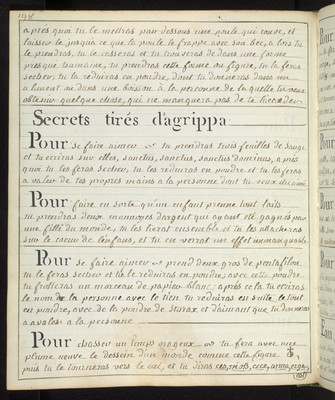 198
après quoi tu le mettras par dessous une poule qui couve, et
laisser le jusqu'a ce que la poule le frappe avec son bec, a lors tu
le prendras, tu le casseras et tu trouveras de dans une forme
presque humaine, tu prendras cette forme ou figure, tu la feras
secher, tu la réduiras en poudre, dont tu donneras dans un
aliment ou dans une boisson à la personne de laquelle tu veux
obtenir quelque chose, qui ne manquera pas de te l'accorder
Secrets tirés d'agrippa
Pour se faire aimer tu prendras trois feuilles de sauge
et tu ecriras sur elles, sanctus, sanctus, sanctus daminus, a près
quoi tu les feras secher, tu les réduras en poudre et tu les feras
a valer de tes propres mains a la personne dont tu veux être aimé
Pour faire en sorte qu'un enfant prenne tout laits
tu prendras deux monnoyes d'argent qui ayant été gagnés par
une fille du monde, tu les lieras ensemble et tu les attacheras
sur le coeur de l'enfans, et tu en verras un effet immanquable
Pour se faire aimer prend deux gros de pentafilon
tu le feras secher et tu le réduiras en poudre, avec cette poudre
tu frotteras un morceau de papier blanc, après cela tu ecriras
le nom de la personne avec le tien tu réduiras en suite le tout
en poudre, avec de la poudre de storax et d'aimant que tu donneras
a avaler a la personne
Pour chasser un temps orageux tu fera avec une
plume neuve le dessein d'un monde comme cette figure
puis tu le tourneras vers le ciel, et tu diras